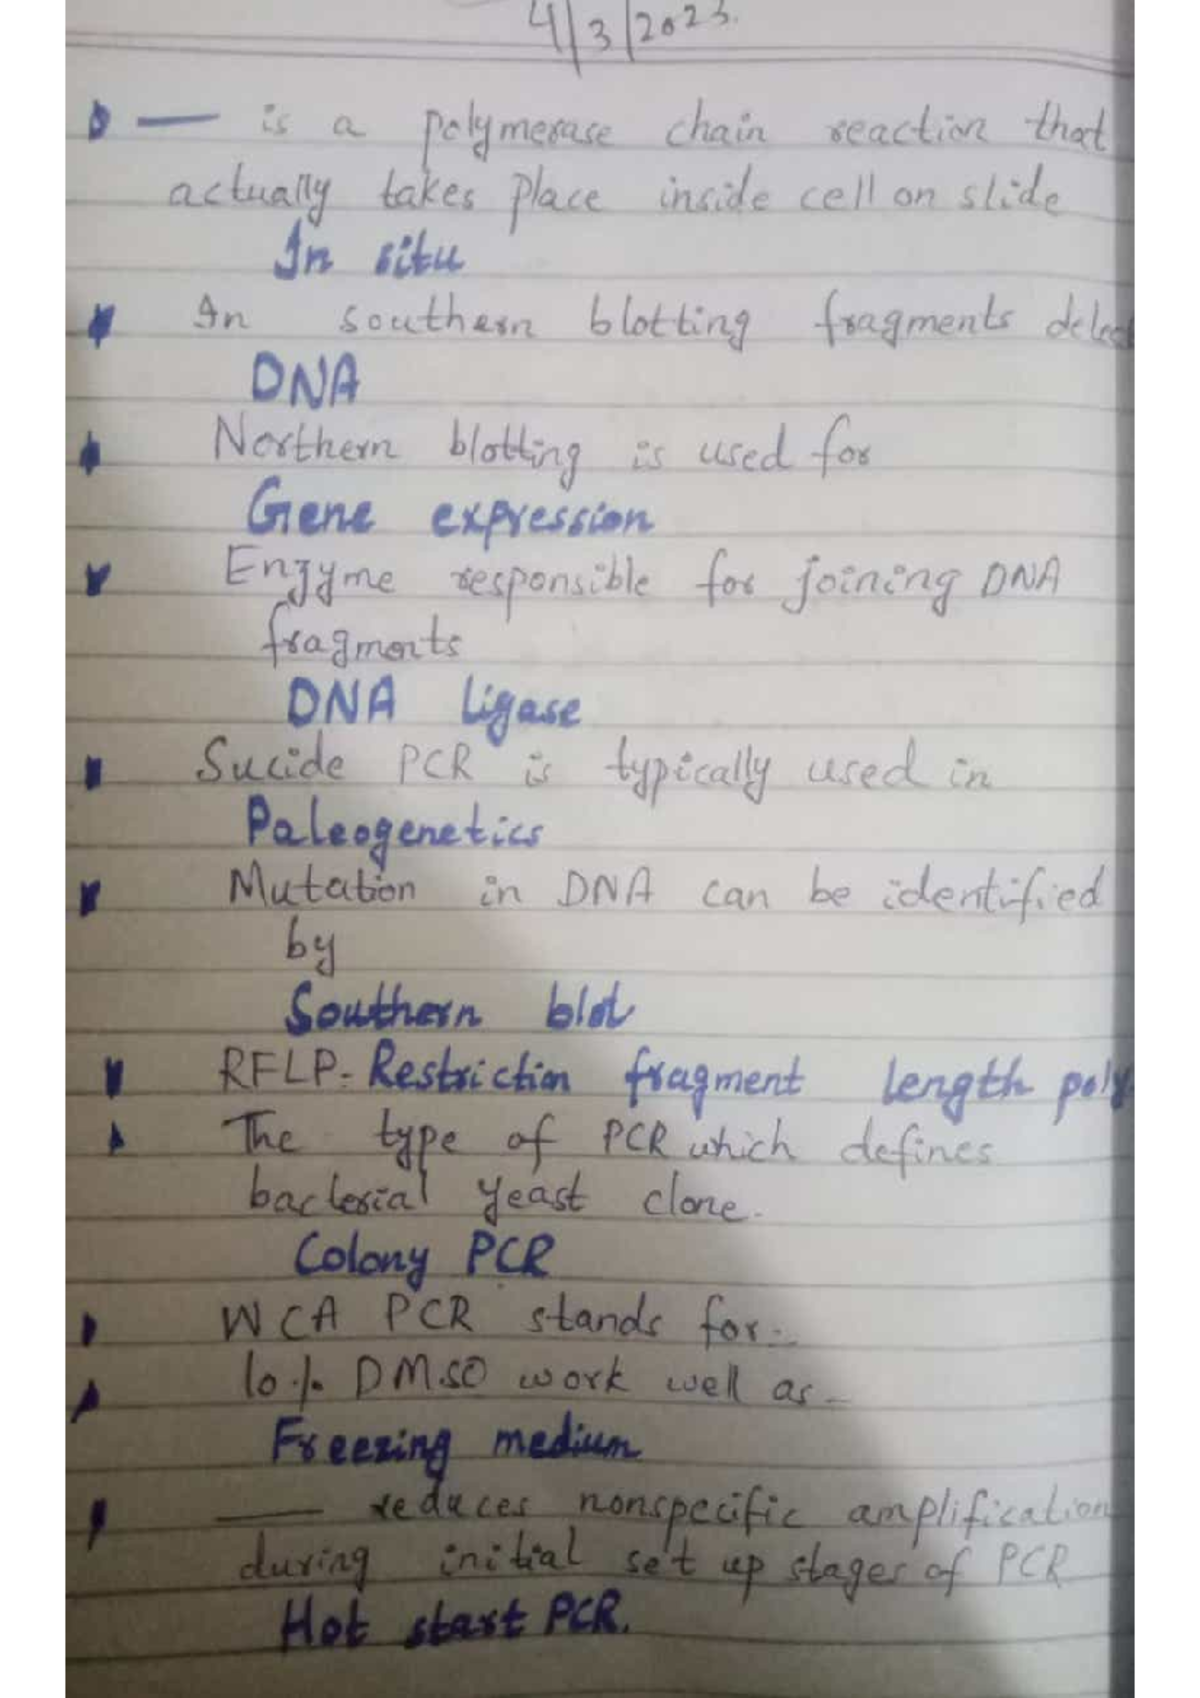 4/3/2023.
— is a polymerase chain reaction that
actually takes place inside cell on slide
In situ
In southern blotting fragments detect
DNA
Northern blotting is used for
Gene expression
Enzyme responsible for joining DNA
fragments
DNA ligase
Sucide PCR is typically used in
Paleogenetics
Mutation in DNA can be identified
by
Southern blot
RFLP- Restriction fragment length poly
The type of PCR which defines
bacterial yeast clone.
Colony PCR
WCA PCR stands for-
10% DMSO work well as -
Freezing medium
— reduces nonspecific amplification
during initial set up stages of PCR
Hot start PCR.